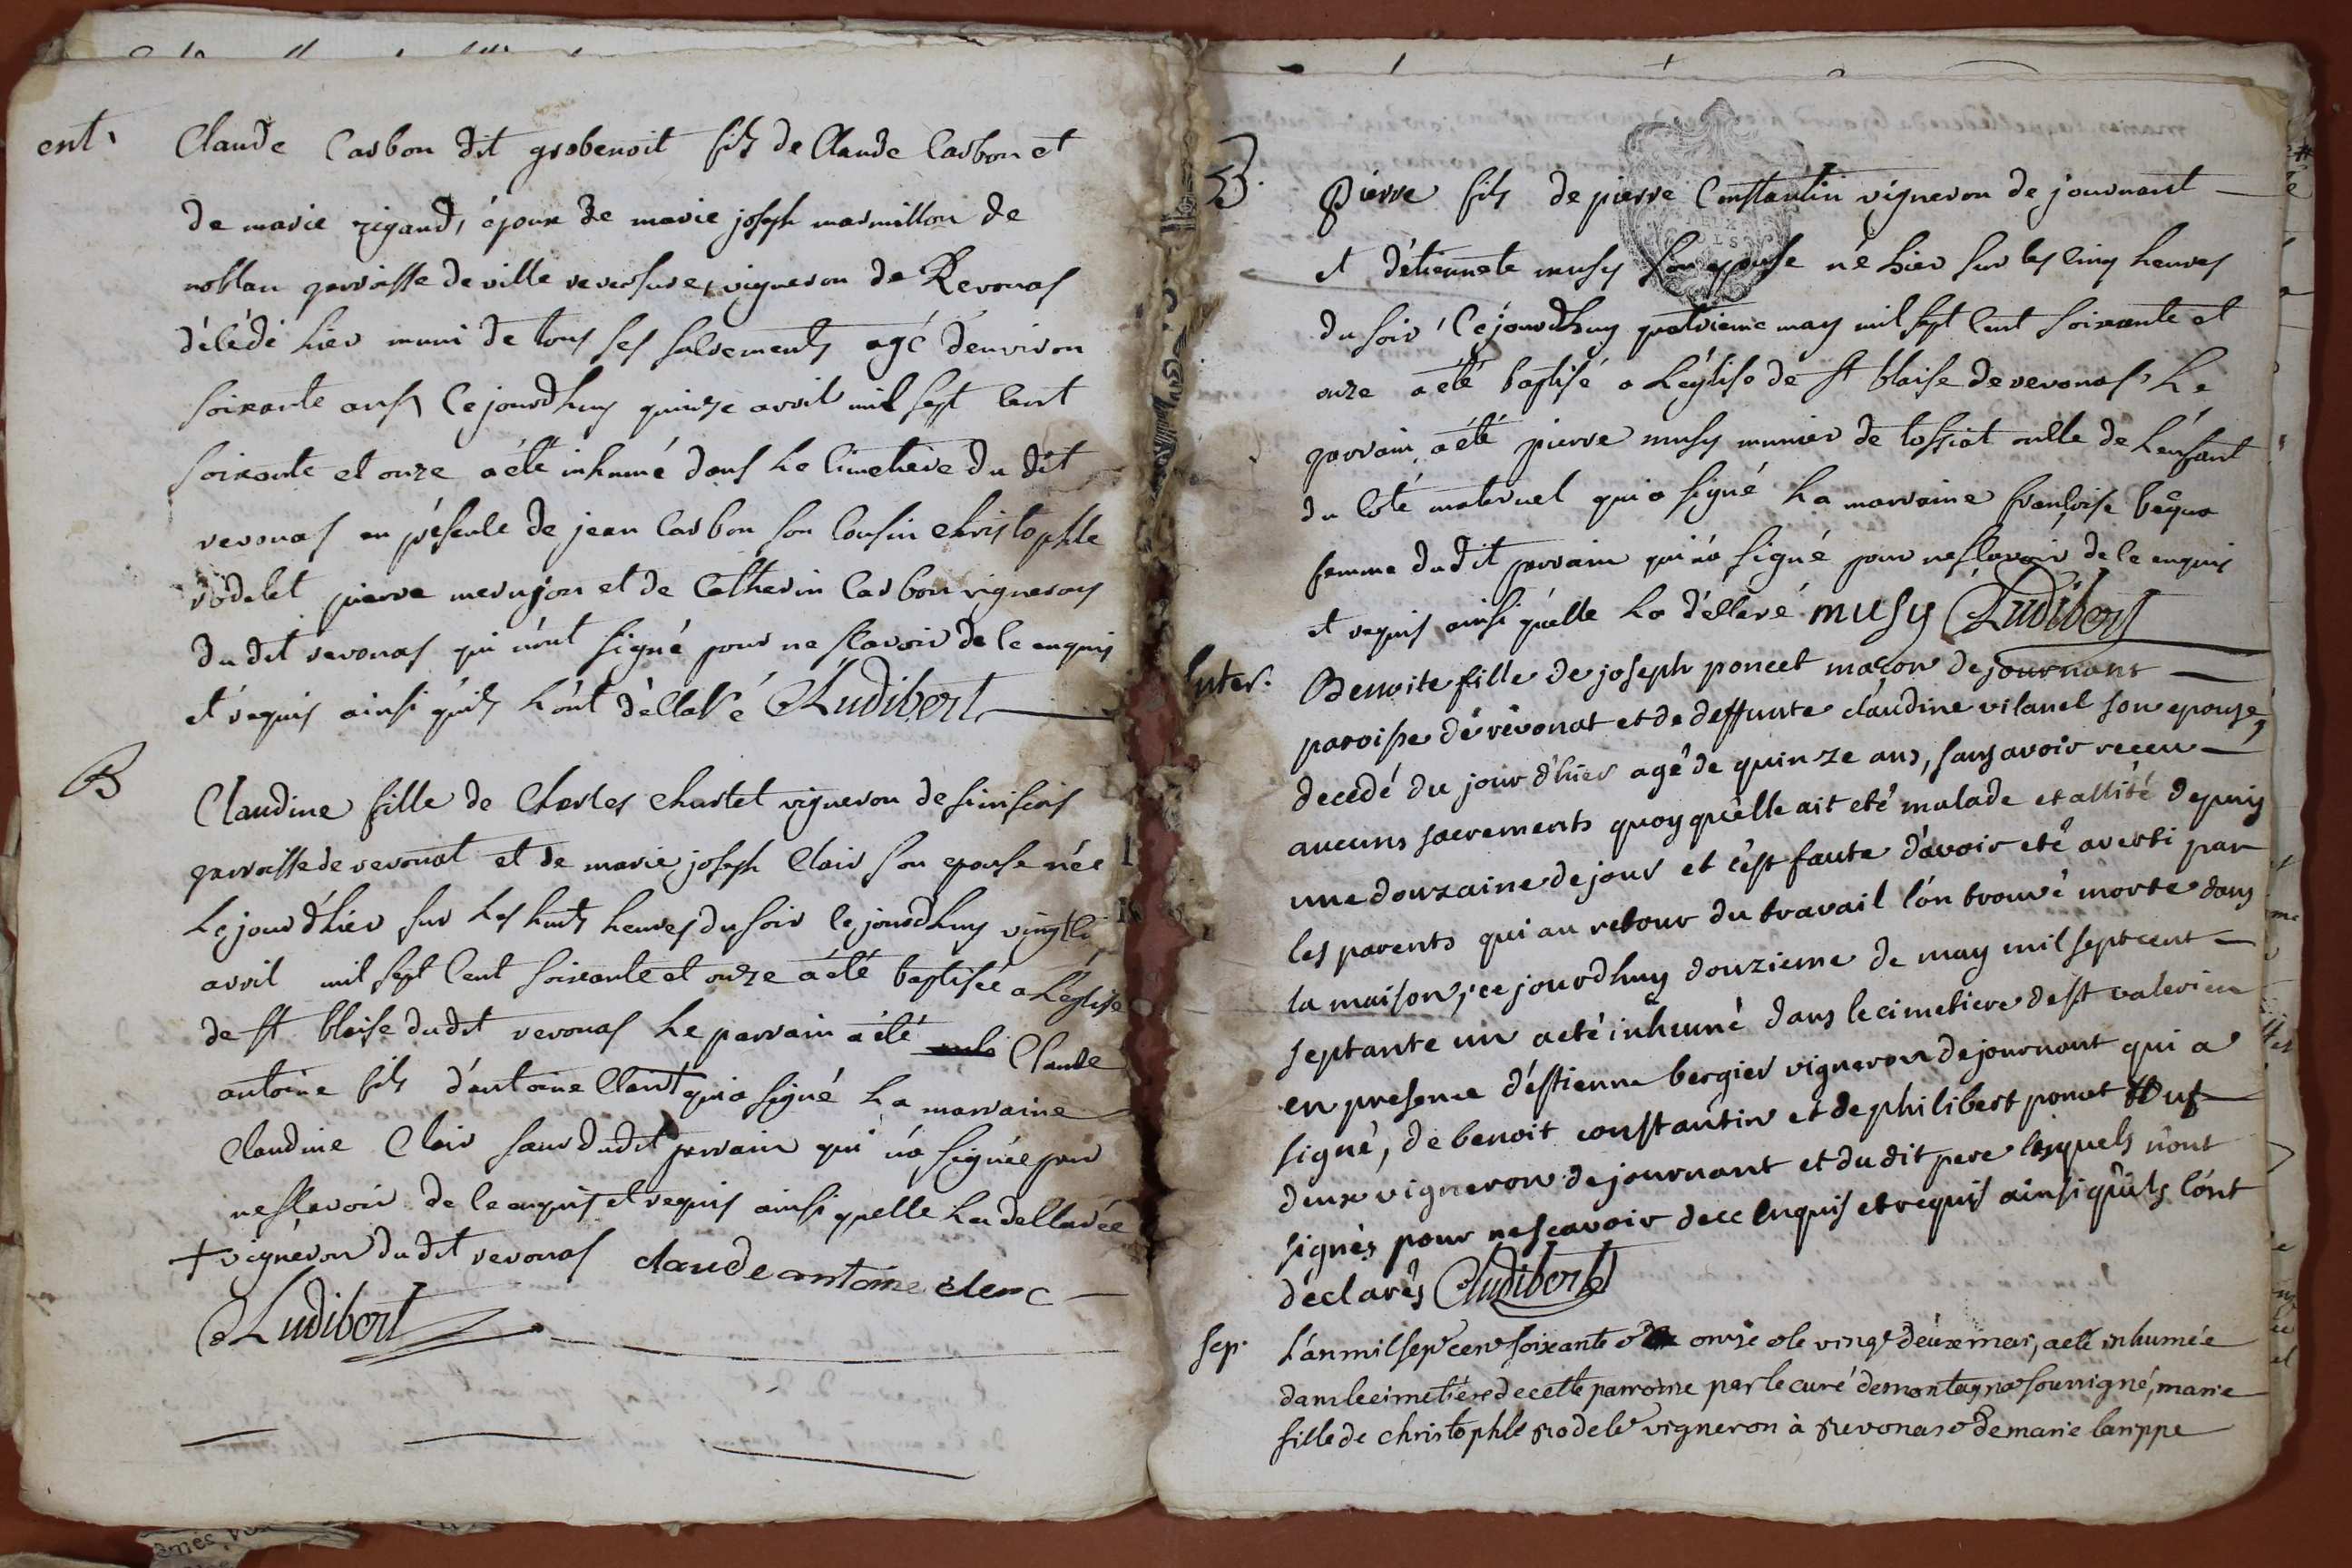 ent.
Claude Carbon dit grobenoit fils de Claude Carbon et
de marie rigaud, époux de marie joseph marmillon de
noblan parroisse de ville reversure, vigneron de Revonas
décédé hier muni de tous ses sacrements agé d'environ
soixante ans, Ce jourdhuy quinze avril mil sept cent
soixante et onze a été inhumé dans le cimetiere du dit
revonas en présence de jean Carbon son cousin christophle
rodelet pierre merujon et de Catherin Carbon vignerons
du dit revonas qui n'ont signé pour ne scavoir de ce enquis
et requis ainsi qu'ils l'ont déclaré CLudibert
B
Claudine fille de Charles chartel vigneron de simsiois
parroisse de revonat et de marie joseph Clair son epouse née
le jour d'hier sur les huit heures du soir ce jourdhuy vingt
avril mil sept cent soixante et onze a été baptisée a l'église
de st blaise dudit revonas le parrain a été Claude
antoine fils d'antoine Clair + qui a signé la marraine
Claudine Clair sœur dudit parrain qui n'a signée pour
ne scavoir de ce enquis et requis ainsi quelle la declarée
+ vigneron du dit revonas claude antoine clerc
CLudibert
B.
Pierre fils de pierre Constantin vigneron de journant
et d'étiennete musy son epouse né hier sur les cinq heures
du soir Ce jourdhuy quatrieme may mil sept cent soixante et
onze a été baptisé a L'église de st blaise de revonas, Le
parrain a été pierre musy munier de tossiat oncle de L'enfant
du coté maternel qui a signé La marraine françoise
femme dudit parrain qui n'a signé pour ne scavoir de ce enquis
et requis ainsi qu'elle la déclaré musy CLudibert
Enter.
Benoite fille de joseph poncet maçon de journant
paroisse de revonat et de deffunte claudine vilanel son epouse,
decedé du jour d'hier agé de quinze ans, sans avoir receu
aucuns sacrements quoy quelle ait eté malade et allité depuis
une douzaine de jour et c'est faute d'avoir eté averti par
les parents qui au retour du travail l'on trouvé morte dans
la maison, ce jourdhuy douzieme de may mil sept cent
septante un a eté inhumé dans le cimetiere de st valerien
en presence d'estienne bergier vigneron de journant qui a
signé, de benoit constantin et de philibert ponat tous
deux vigneron de journant et dudit pere lesquels n'ont
signés pour ne scavoir de ce enquis et requis ainsi qu'ils l'ont
déclarés CLudibert
sep.
L'an mil sept cent soixante et onze et le vingt deux mai, a eté inhumée
dans le cimetiére de cette parroisse par le curé de montagna soussigné, marie
fille de christophle rodelet vigneron à revonas et de marie larippe